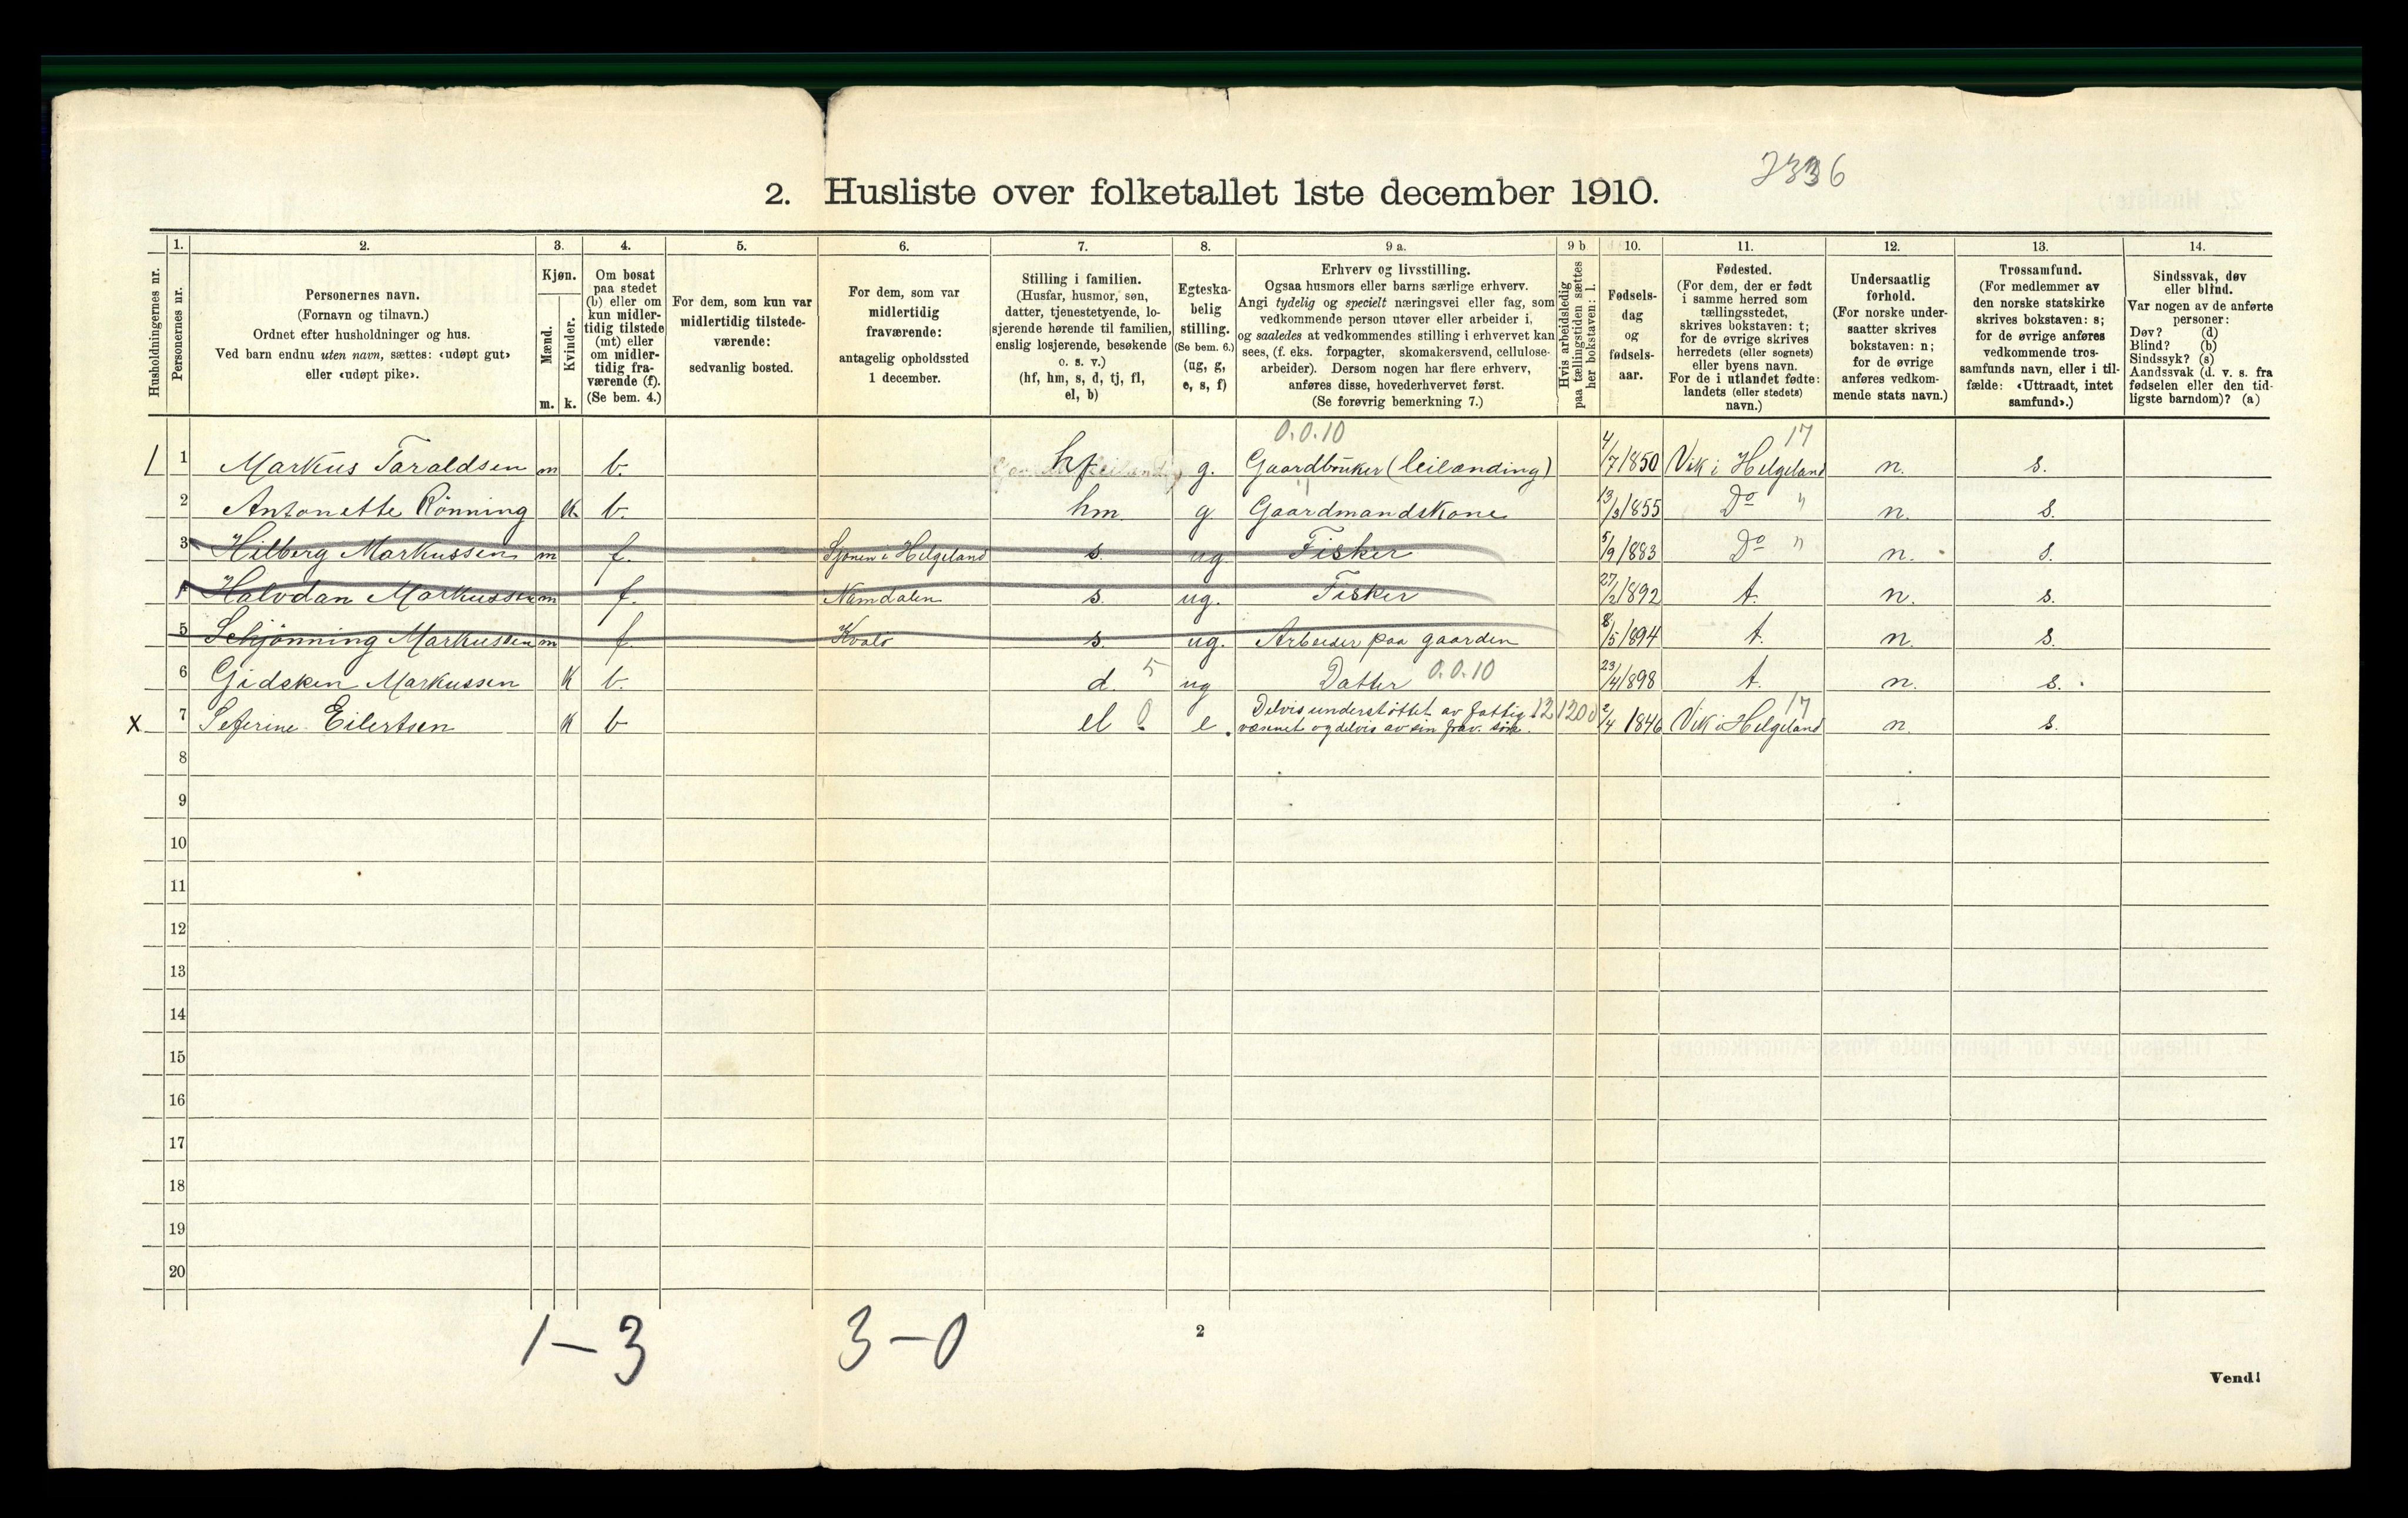 7336
2. Husliste over folketallet 1ste december 1910.
Husholdningernes nr.
1.
Personernes nr.
2.
Personernes navn.
(Fornavn og tilnavn.)
Ordnet efter husholdninger og hus.
Ved barn endnu uten navn, sættes: «udøpt gut»
eller «udøpt pike».
3.
Kjøn.
Mænd.
Kvinder.
m. k.
4.
Om bosat
paa stedet
(b) eller om
kun midler-
tidig tilstede
(mt) eller
om midler-
tidig fra-
værende (f).
(Se bem. 4.)
5.
For dem, som kun var
midlertidig tilstede-
værende:
sedvanlig bosted.
6.
For dem, som var
midlertidig
fraværende:
antagelig opholdssted
1 december.
7.
Stilling i familien.
(Husfar, husmor, søn,
datter, tjenestetyende, lo-
sjerende hørende til familien,
enslig losjerende, besøkende
o. s. v.)
(hf, hm, s, d, tj, fl,
el, b)
8.
Egteska-
belig
stilling.
(Se bem. 6.)
(ug, g,
e, s, f)
9 a.
Erhverv og livsstilling.
Ogsaa husmors eller barns særlige erhverv.
Angi tydelig og specielt næringsvei eller fag, som
vedkommende person utøver eller arbeider i,
og saaledes at vedkommendes stilling i erhvervet kan
sees, (f. eks. forpagter, skomakersvend, cellulose-
arbeider). Dersom nogen har flere erhverv,
anføres disse, hovederhvervet først.
(Se forøvrig bemerkning 7.)
9 b
Hvis arbeidsledig
paa tællingstiden sættes
her bokstaven: l.
10.
Fødsels-
dag
og
fødsels-
aar.
11.
Fødested.
(For dem, der er født
i samme herred som
tællingsstedet,
skrives bokstaven: t;
for de øvrige skrives
herredets (eller sognets)
eller byens navn.
For de i utlandet fødte:
landets (eller stedets)
navn.)
12.
Undersaatlig
forhold.
(For norske under-
saatter skrives
bokstaven: n;
for de øvrige
anføres vedkom-
mende stats navn.)
13.
Trossamfund.
(For medlemmer av
den norske statskirke
skrives bokstaven: s;
for de øvrige anføres
vedkommende tros-
samfunds navn, eller i til-
fælde: «Uttraadt, intet
samfund».)
14.
Sindssvak, døv
eller blind.
Var nogen av de anførte
personer:
Døv? (d)
Blind? (b)
Sindssyk? (s)
Aandssvak (d. v. s. fra
fødselen eller den tid-
ligste barndom)? (a)
0.0.10 17
1 1 Markus Taraldsen m b. hf g. Gaardbruker (leilænding) 4/7 1850 Vik i Helgeland n. s.
2 Antonette Rønning k b. hm. g Gaardmandskone 13/3 1855 Do " n. s.
3 Hilberg Markussen m f. Sjonen i Helgeland s. ug. Fisker 5/9 1883 Do " n. s.
Halvdan Markussen m f. Namdalen s. ug. Fisker 27/2 1892 t. n. s.
5 Schjønning Markussen m f. Kvalø s. ug. Arbeider paa gaarden 8/5 1894 t. n. s.
6 Gidsken Markussen k b. d. 5 ug Datter 0.0.10 23/4 1898 t. n. s.
x 7 Seferine Eilertsen k b el 0 e. Delvis understøttet av fattig- 12 1200 2/4 1846 Vik i Helgeland 17 n. s.
væsnet og delvis av sin frav. søn.
8
9
10
11
12
13
14
15
16
17
18
19
20
1 – 3 3 – 0
2
Vend!